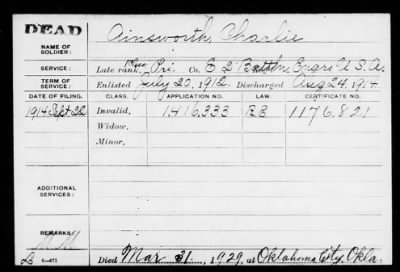 DEAD
Ainsworth, Charlie
NAME OF SOLDIER:
SERVICE: Late rank, Pri. Co. E 2 Battn, Engrs U.S.A.
TERM OF SERVICE: Enlisted July 20, 1912, Discharged Aug 24, 1914
DATE OF FILING. CLASS. APPLICATION NO. LAW. CERTIFICATE NO.
1914 Sept 22 Invalid, 1,416,333 1176,821
Widow,
Minor,
ADDITIONAL SERVICES:
REMARKS:
Died Mar 31, 1929, at Oklahoma City, Okla.